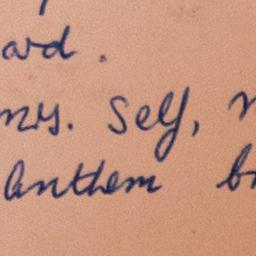 ard.
ms. Self,
Anthem